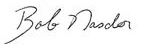 Bob Nasdor